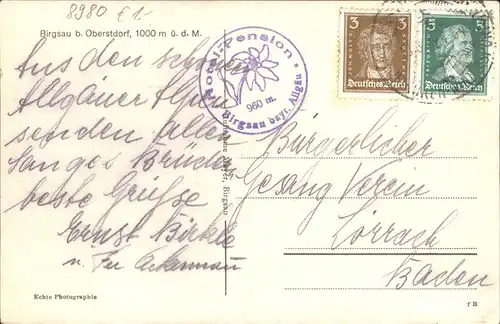 8980 £1-
Birgsau b. Oberstdorf, 1000 m ü. d. M.
Aus den schönen
Allgäuer Alpen
senden allen
Sanges Brüder
beste Grüsse
Ernst Birkle
u. Frz Ackermann
Echte Photographie
Adler-Pension
960 m.
Birgsau bayr. Allgäu
Birgsau
3 3
Deutsches Reich
5 5
Deutsches Reich
Bürgerlicher
Gesang Verein
Lörrach
Baden
f R